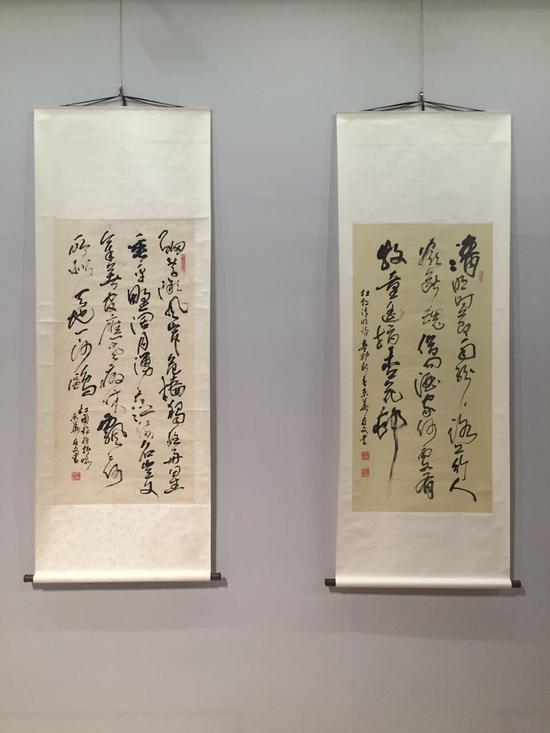 清明时节雨纷〻路上行人
欲断魂借问酒家何处有
牧童遥指杏花村
杜牧清明诗
细草微风岸危樯独夜舟星
垂平野阔月涌大江流名岂文
章著官应老病休飘〻何
所似天地一沙鸥
杜甫旅夜书怀